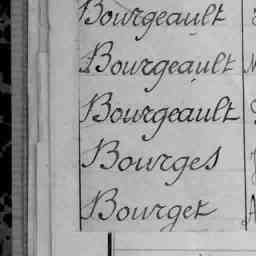 Bourgeault
Bourgeault
Bourgeault
Bourges
Bourget